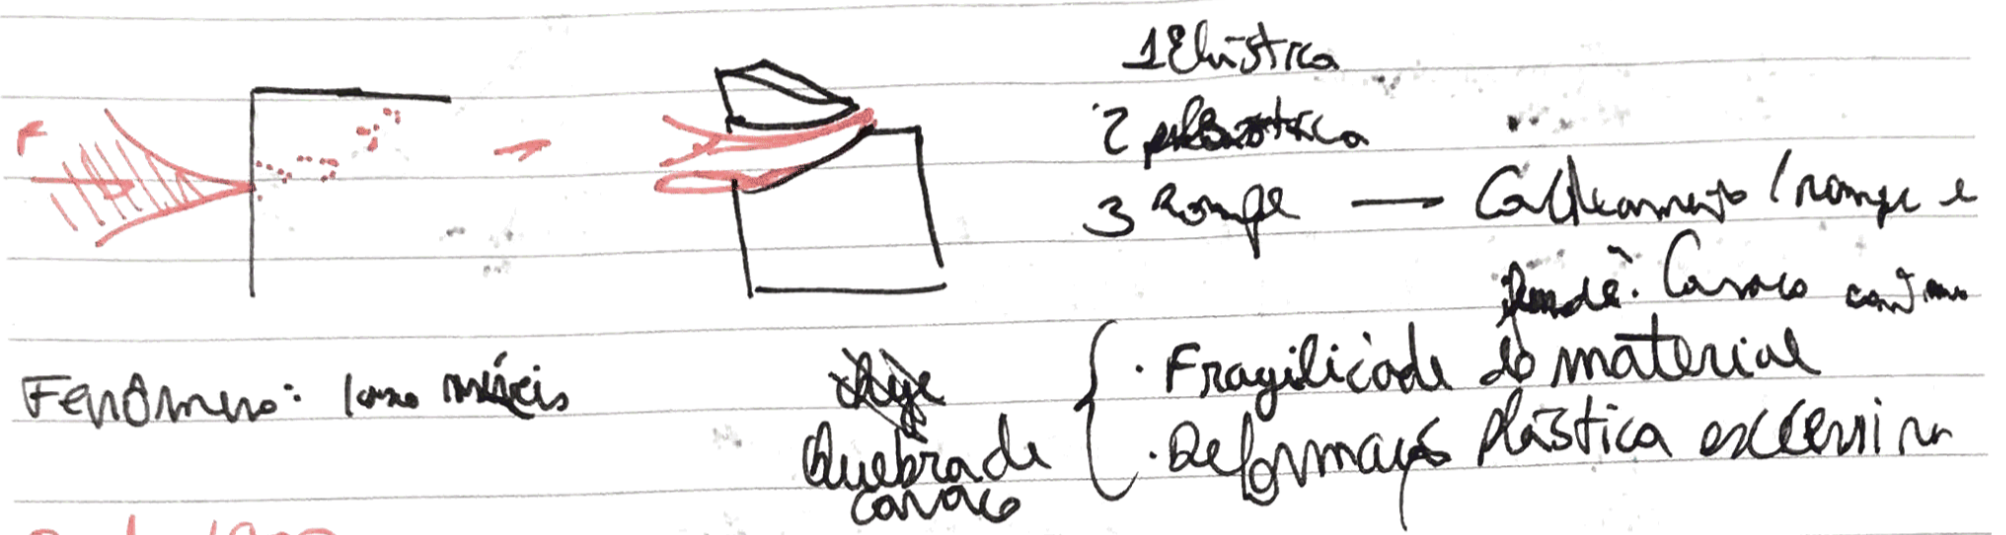 1 Elástica
2 plástica
3 Rompe → Caldeamento / rompe e
prende. Cavaco contínuo
F
Fenômeno:
Quebra de
cavaco
· Fragilidade do material
· Deformação plástica excessiva